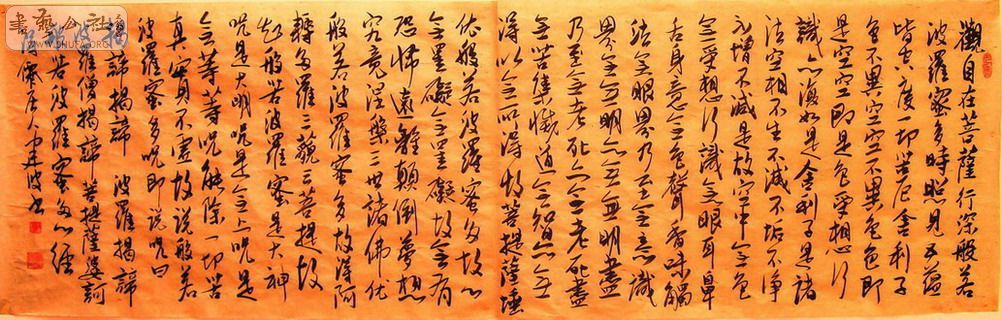 觀自在菩薩行深般若
波羅蜜多時照見五蘊
皆空度一切苦厄舍利子
色不異空空不異色色即
是空空即是色受想行
識亦復如是舍利子是諸
法空相不生不滅不垢不淨
不增不減是故空中無色
無受想行識無眼耳鼻
舌身意無色聲香味觸
法無眼界乃至無意識
界無無明亦無無明盡
乃至無老死亦無老死盡
無苦集滅道無智亦無
得以無所得故菩提薩埵
依般若波羅蜜多故心
無罣礙無罣礙故無有
恐怖遠離顛倒夢想
究竟涅槃三世諸佛依
般若波羅蜜多故得阿
耨多羅三藐三菩提故
知般若波羅蜜是大神
咒是大明咒是無上咒是
無等等咒能除一切苦
真實不虛故說般若
波羅蜜多咒即說咒曰
揭諦揭諦 波羅揭諦
波羅僧揭諦 菩提薩婆訶
般若波羅蜜多心經
書藝公社
WWW.SHUFA.ORG